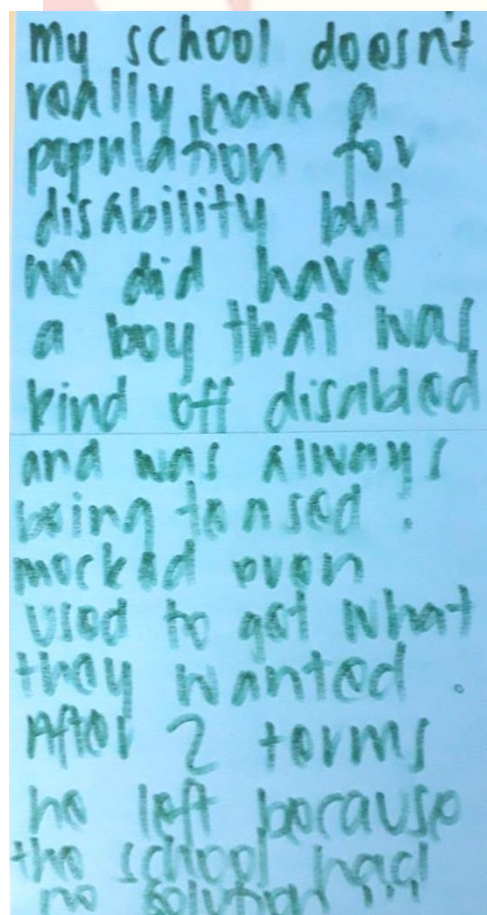 My school doesn't
really have a
population for
disability but
we did have
a boy that was
kind off disabled
and was always
being teased,
mocked even
used to get what
they wanted.
After 2 terms
he left because
the school had
no solution!!!